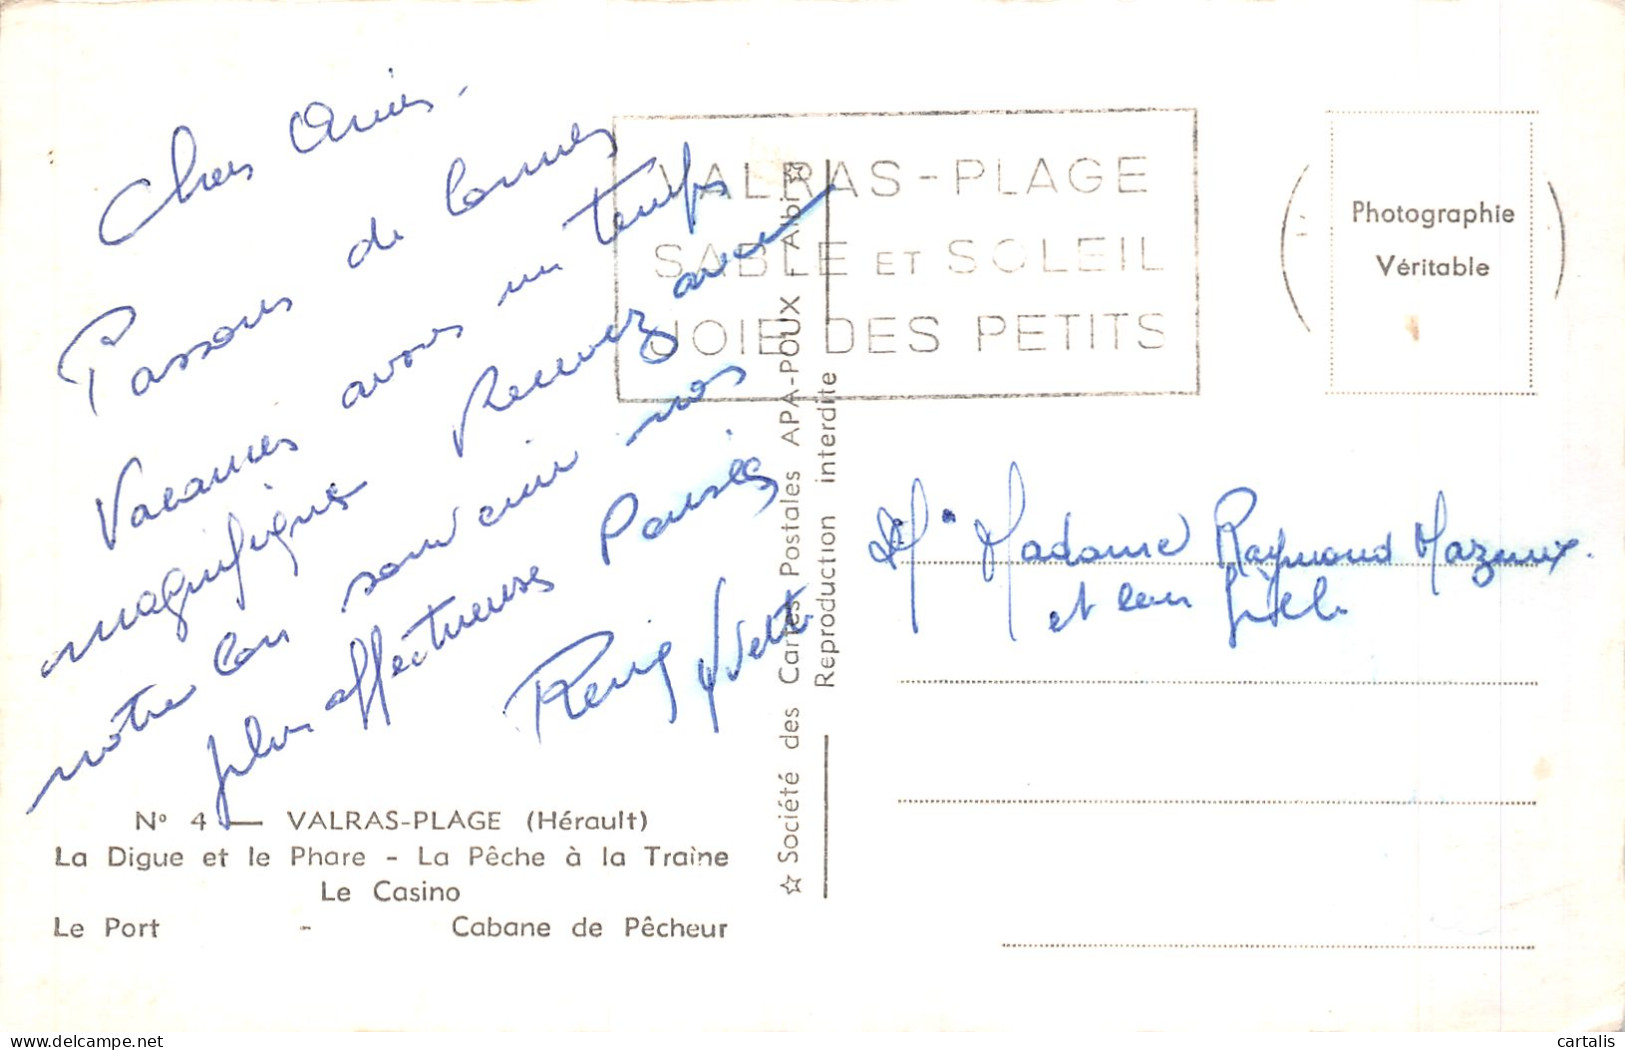 Chers Amis.
Passons de bonnes
Vacances avons un temps
magnifique Recevez avec
notre bon souvenir nos
plus affectueuses Pensées
René Yvette
VALRAS-PLAGE
SABLE ET SOLEIL
JOIE DES PETITS
Photographie
Véritable
Mr Madame Raymond Mazeaux.
et leur fille
☆ Société des Cartes Postales APA-POUX - Albi ☆
Reproduction interdite
No 4 — VALRAS-PLAGE (Hérault)
La Digue et le Phare - La Pêche à la Traîne
Le Casino
Le Port - Cabane de Pêcheur
cartalis